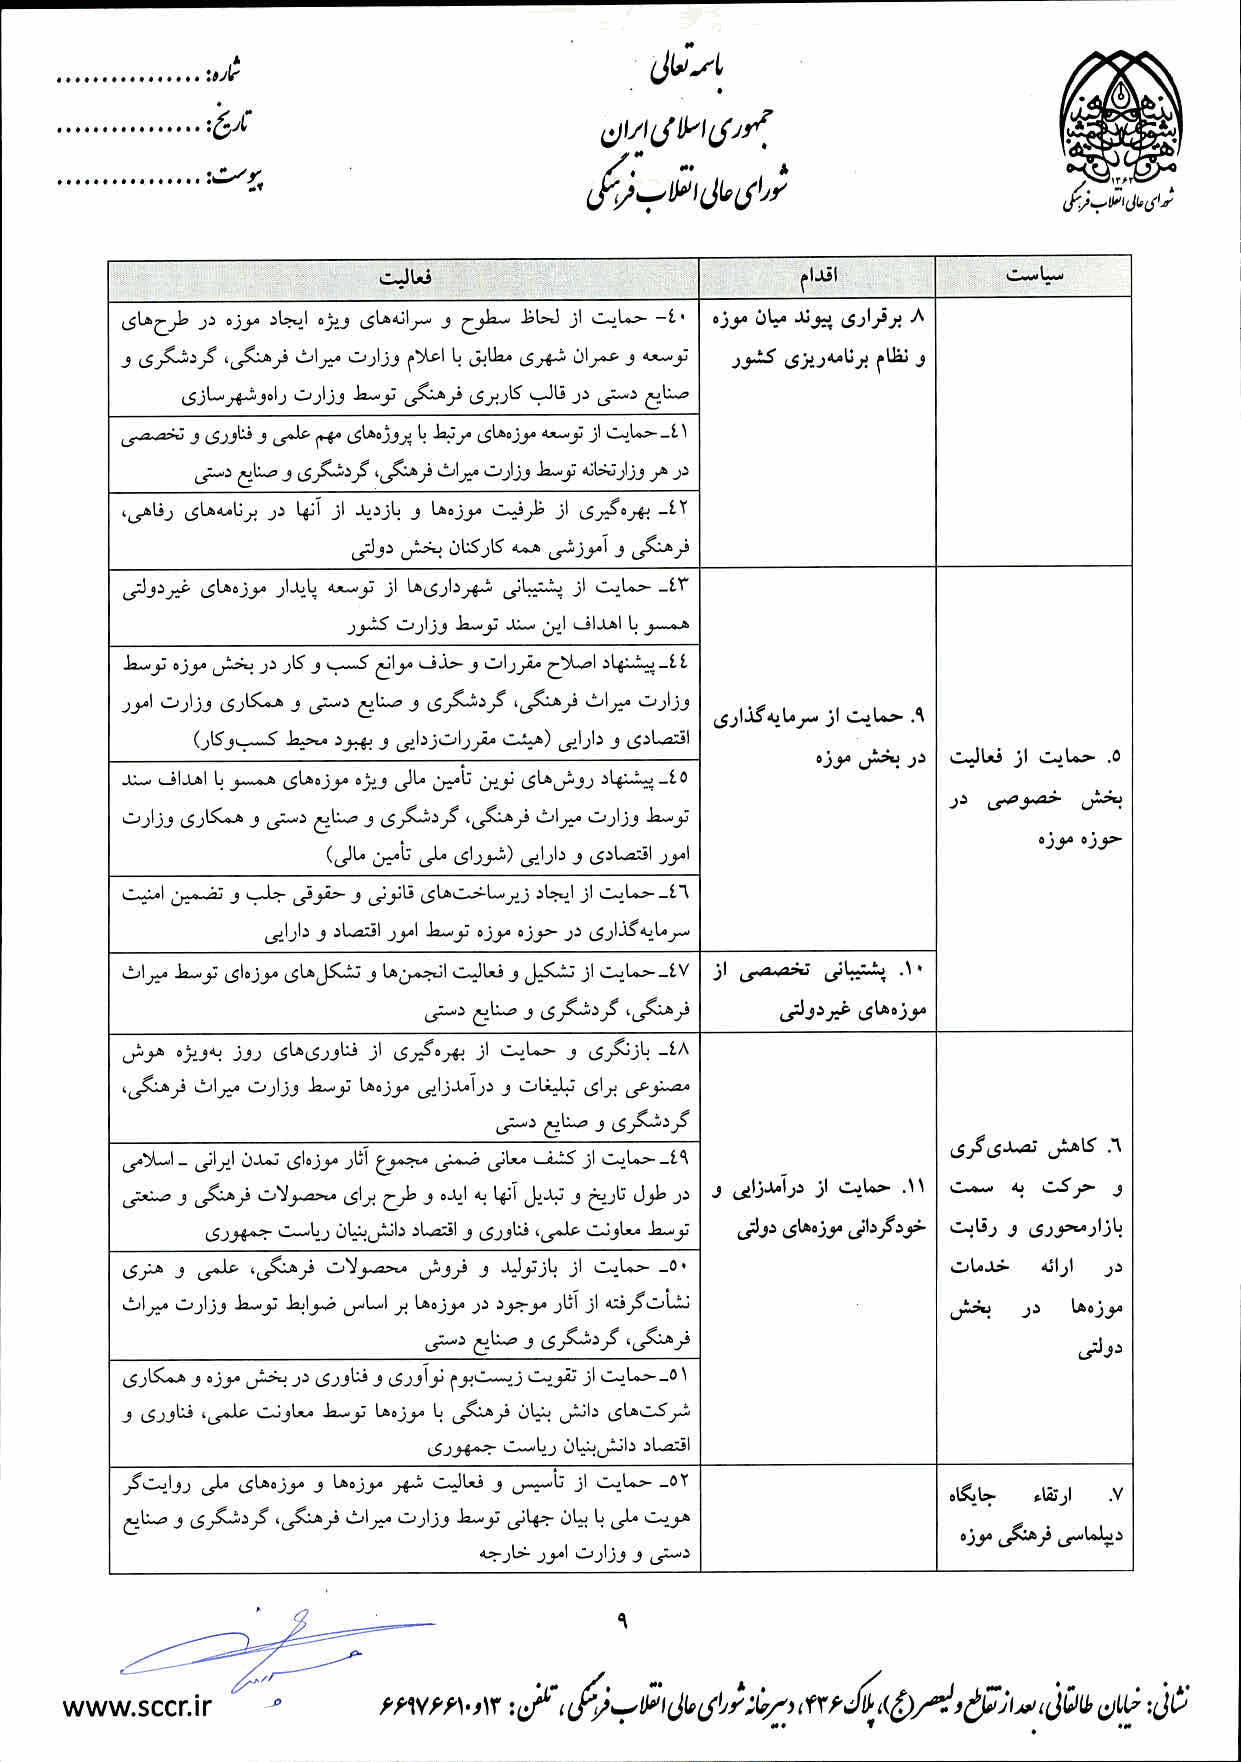 باسمه تعالی
جمهوری اسلامی ایران
شورای عالی انقلاب فرهنگی
شماره: ................
تاریخ: ................
پیوست: ................
۱۳۶۳
شورای عالی انقلاب فرهنگی
سیاست
اقدام
فعالیت
۸. برقراری پیوند میان موزه
و نظام برنامه‌ریزی کشور
۴۰- حمایت از لحاظ سطوح و سرانه‌های ویژه ایجاد موزه در طرح‌های
توسعه و عمران شهری مطابق با اعلام وزارت میراث فرهنگی، گردشگری و
صنایع دستی در قالب کاربری فرهنگی توسط وزارت راه‌وشهرسازی
۴۱- حمایت از توسعه موزه‌های مرتبط با پروژه‌های مهم علمی و فناوری و تخصصی
در هر وزارتخانه توسط وزارت میراث فرهنگی، گردشگری و صنایع دستی
۴۲- بهره‌گیری از ظرفیت موزه‌ها و بازدید از آنها در برنامه‌های رفاهی،
فرهنگی و آموزشی همه کارکنان بخش دولتی
۵. حمایت از فعالیت
بخش خصوصی در
حوزه موزه
۹. حمایت از سرمایه‌گذاری
در بخش موزه
۴۳- حمایت از پشتیبانی شهرداری‌ها از توسعه پایدار موزه‌های غیردولتی
همسو با اهداف این سند توسط وزارت کشور
۴۴- پیشنهاد اصلاح مقررات و حذف موانع کسب و کار در بخش موزه توسط
وزارت میراث فرهنگی، گردشگری و صنایع دستی و همکاری وزارت امور
اقتصادی و دارایی (هیئت مقررات‌زدایی و بهبود محیط کسب‌وکار)
۴۵- پیشنهاد روش‌های نوین تأمین مالی ویژه موزه‌های همسو با اهداف سند
توسط وزارت میراث فرهنگی، گردشگری و صنایع دستی و همکاری وزارت
امور اقتصادی و دارایی (شورای ملی تأمین مالی)
۴۶- حمایت از ایجاد زیرساخت‌های قانونی و حقوقی جلب و تضمین امنیت
سرمایه‌گذاری در حوزه موزه توسط امور اقتصاد و دارایی
۱۰. پشتیبانی تخصصی از
موزه‌های غیردولتی
۴۷- حمایت از تشکیل و فعالیت انجمن‌ها و تشکل‌های موزه‌ای توسط میراث
فرهنگی، گردشگری و صنایع دستی
۶. کاهش تصدی‌گری
و حرکت به سمت
بازارمحوری و رقابت
در ارائه خدمات
موزه‌ها در بخش
دولتی
۱۱. حمایت از درآمدزایی و
خودگردانی موزه‌های دولتی
۴۸- بازنگری و حمایت از بهره‌گیری از فناوری‌های روز به‌ویژه هوش
مصنوعی برای تبلیغات و درآمدزایی موزه‌ها توسط وزارت میراث فرهنگی،
گردشگری و صنایع دستی
۴۹- حمایت از کشف معانی ضمنی مجموع آثار موزه‌ای تمدن ایرانی - اسلامی
در طول تاریخ و تبدیل آنها به ایده و طرح برای محصولات فرهنگی و صنعتی
توسط معاونت علمی، فناوری و اقتصاد دانش‌بنیان ریاست جمهوری
۵۰- حمایت از بازتولید و فروش محصولات فرهنگی، علمی و هنری
نشأت‌گرفته از آثار موجود در موزه‌ها بر اساس ضوابط توسط وزارت میراث
فرهنگی، گردشگری و صنایع دستی
۵۱- حمایت از تقویت زیست‌بوم نوآوری و فناوری در بخش موزه و همکاری
شرکت‌های دانش بنیان فرهنگی با موزه‌ها توسط معاونت علمی، فناوری و
اقتصاد دانش‌بنیان ریاست جمهوری
۷. ارتقاء جایگاه
دیپلماسی فرهنگی موزه
۵۲- حمایت از تأسیس و فعالیت شهر موزه‌ها و موزه‌های ملی روایت‌گر
هویت ملی با بیان جهانی توسط وزارت میراث فرهنگی، گردشگری و صنایع
دستی و وزارت امور خارجه
۹
نشانی: خیابان طالقانی، بعد از تقاطع ولیعصر (عج)، پلاک ۴۳۶، دبیرخانه شورای عالی انقلاب فرهنگی، تلفن: ۱۳ و ۶۶۹۷۶۶۱۰
www.sccr.ir